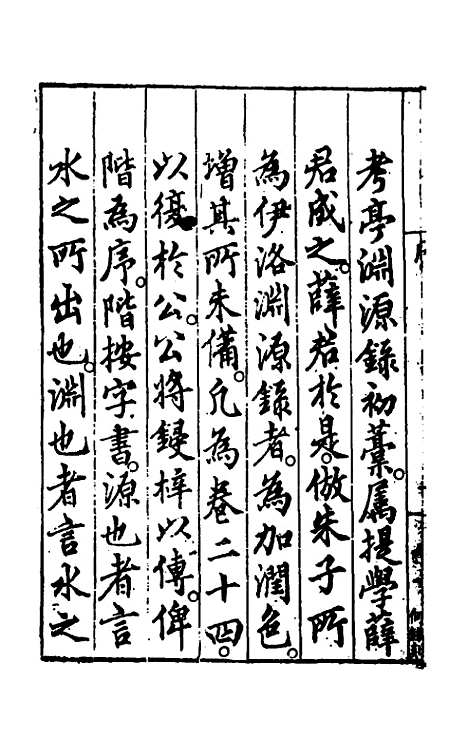 考亭淵源錄初藁。属提學薛
君成之。薛君於是。倣朱子所
為伊洛淵源錄者。為加潤色。
增其所未備。凡為卷二十四。
以復於公。公將鋟梓以傳。俾
階為序。階按字書。源也者言
水之所出也。淵也者言水之